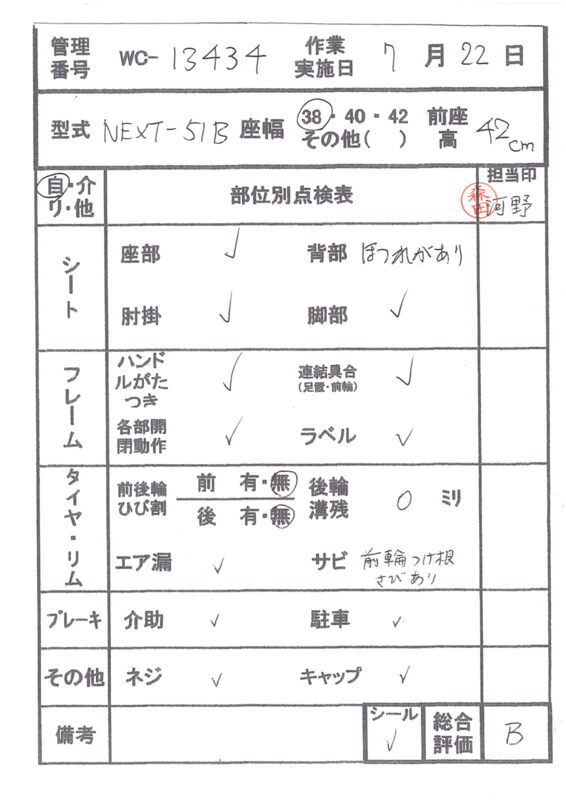 管理番号 WC-13434 作業実施日 7月22日
型式 NEXT-51B 座幅 38・40・42 その他( ) 前座高 42cm
自・介・リ・他 部位別点検表 担当印
森田 河野
シート
座部 ✓ 背部 ほつれがあり
肘掛 ✓ 脚部 ✓
フレーム
ハンドルがたつき ✓ 連結具合(足置・前輪) ✓
各部開閉動作 ✓ ラベル ✓
タイヤ・リム
前後輪ひび割 前 有・無 後 有・無 後輪溝残 0 ミリ
エア漏 ✓ サビ 前輪つけ根さびあり
ブレーキ 介助 ✓ 駐車 ✓
その他 ネジ ✓ キャップ ✓
備考 シール ✓ 総合評価 B